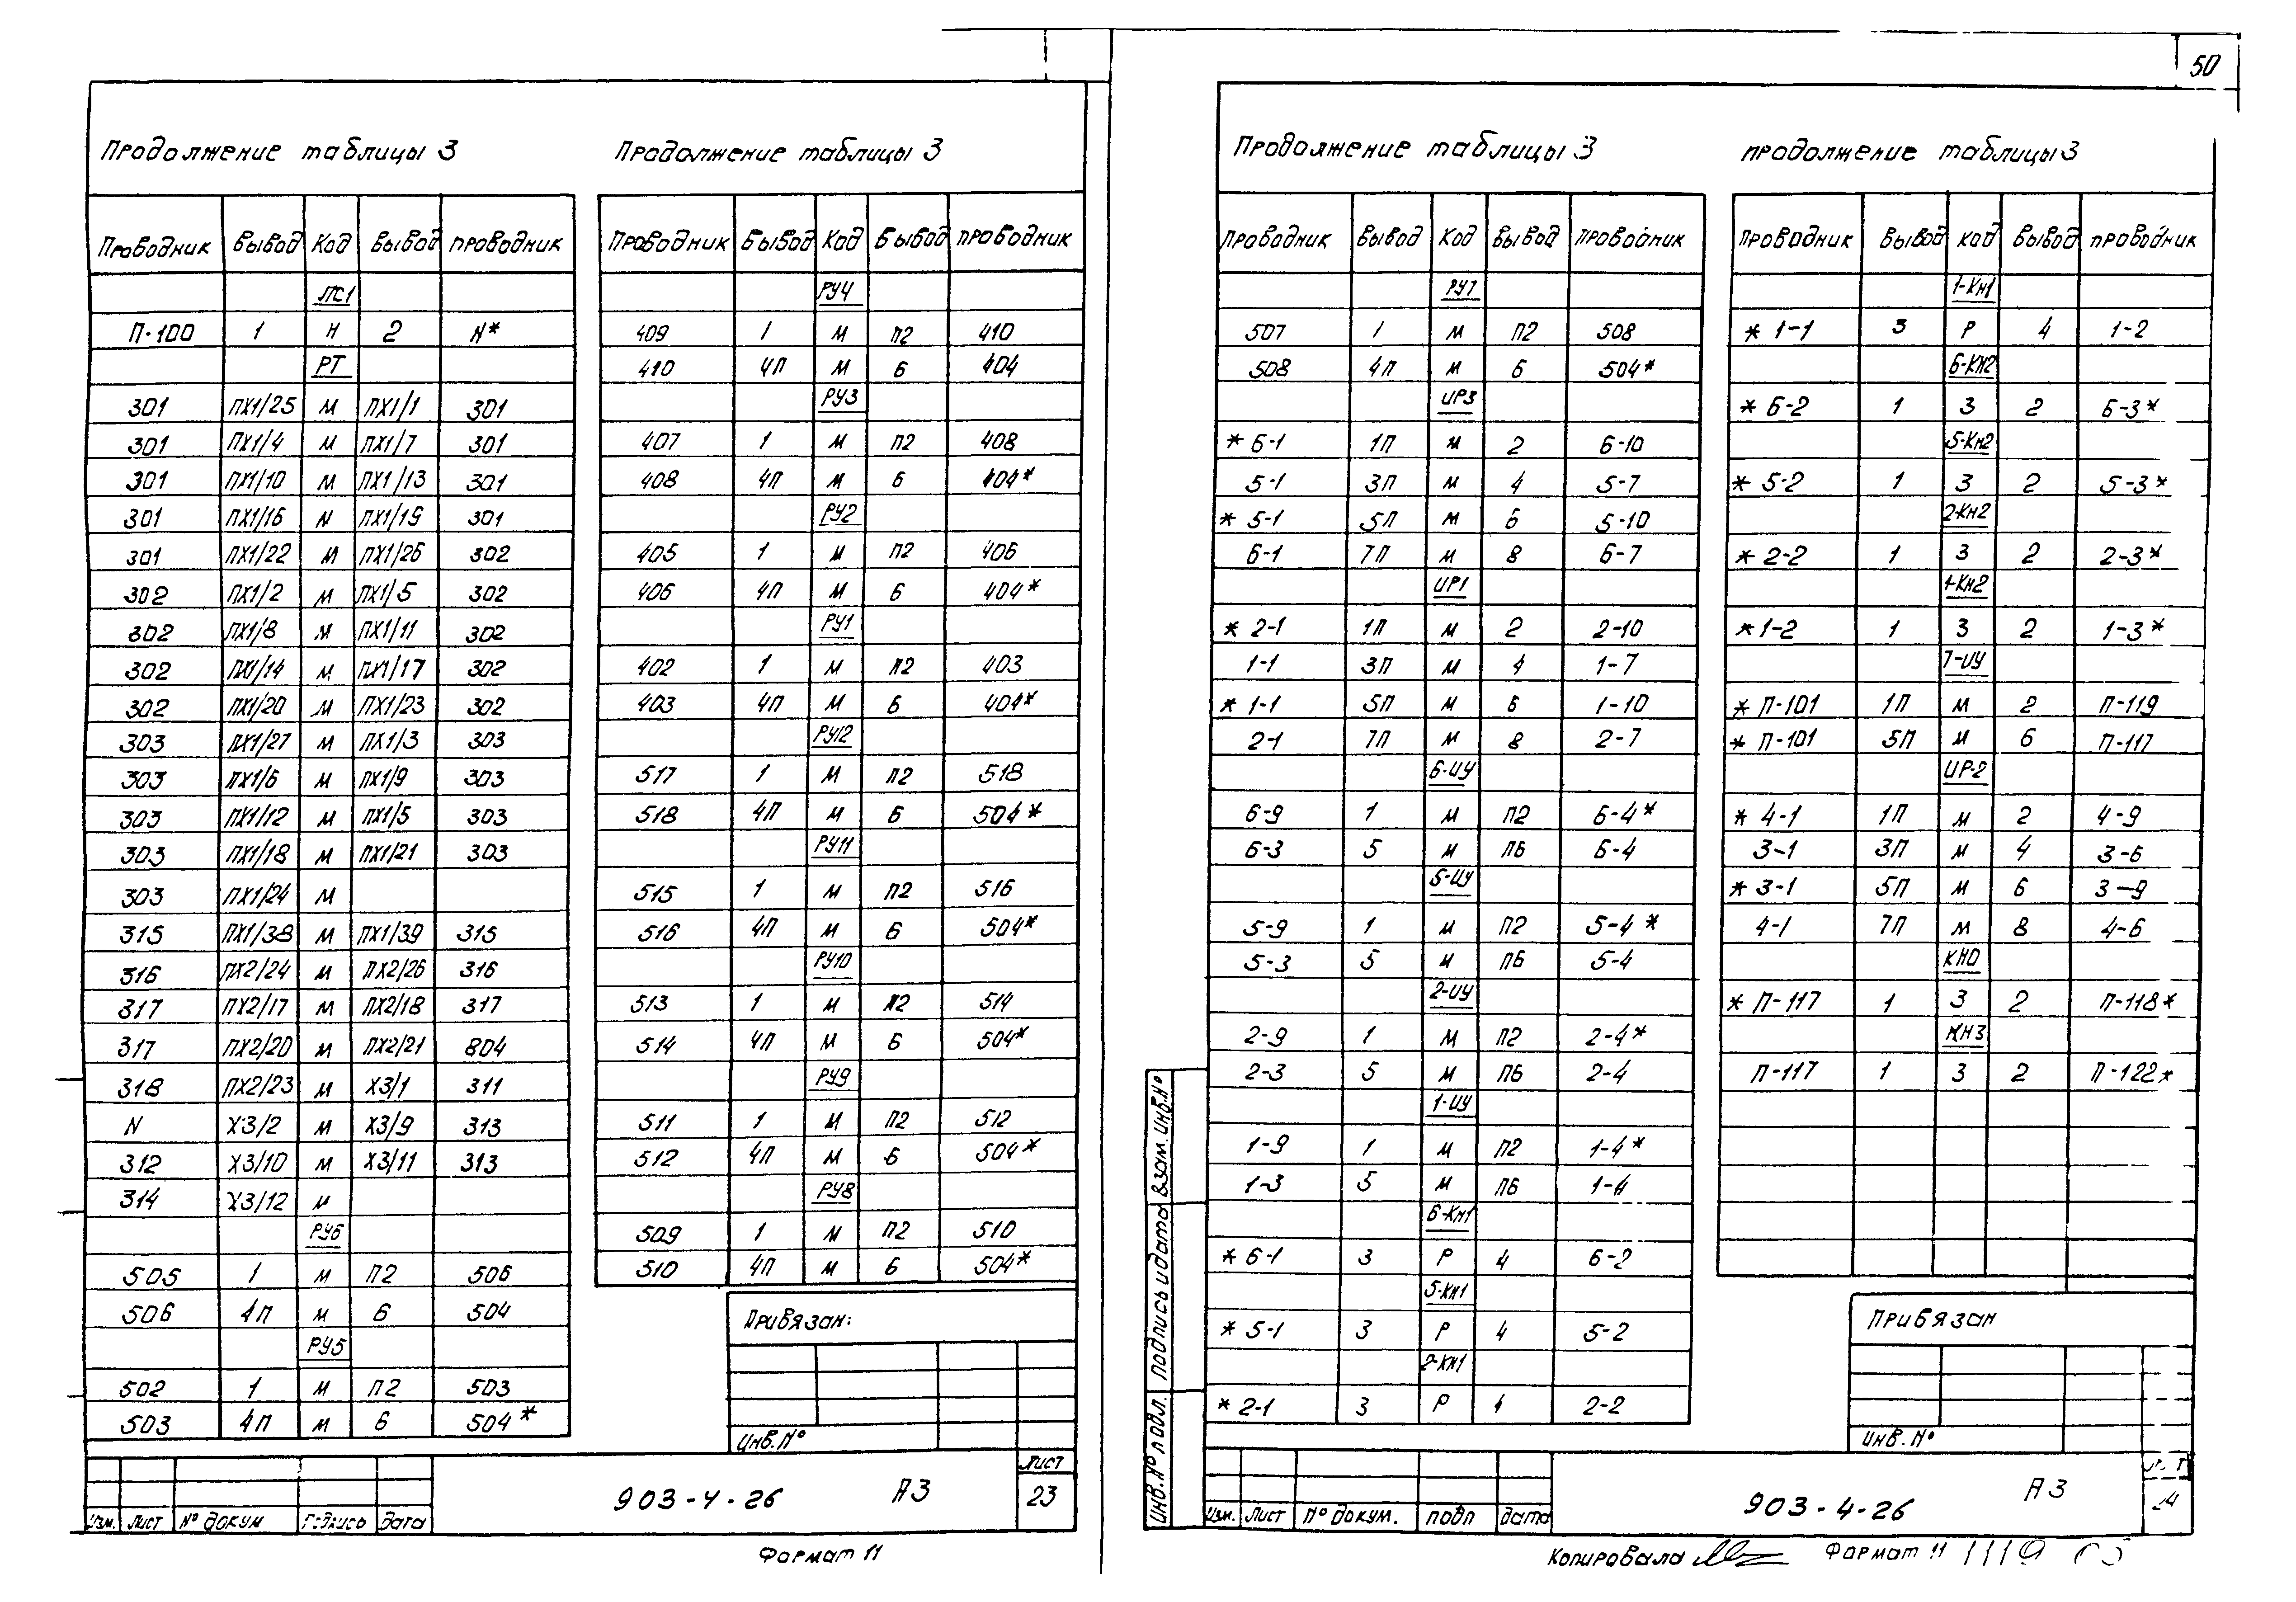 50
Продолжение таблицы 3
Проводник Вывод Код Вывод Проводник
ЛС1
П-100 1 Н 2 N*
РТ
301 ПХ1/25 М ПХ1/1 301
301 ПХ1/4 М ПХ1/7 301
301 ПХ1/10 М ПХ1/13 301
301 ПХ1/16 М ПХ1/19 301
301 ПХ1/22 М ПХ1/26 302
302 ПХ1/2 М ПХ1/5 302
302 ПХ1/8 М ПХ1/11 302
302 ПХ1/14 М ПХ1/17 302
302 ПХ1/20 М ПХ1/23 302
303 ПХ1/27 М ПХ1/3 303
303 ПХ1/6 М ПХ1/9 303
303 ПХ1/12 М ПХ1/5 303
303 ПХ1/18 М ПХ1/21 303
303 ПХ1/24 М
315 ПХ1/38 М ПХ1/39 315
316 ПХ2/24 М ПХ2/26 316
317 ПХ2/17 М ПХ2/18 317
317 ПХ2/20 М ПХ2/21 804
318 ПХ2/23 М Х3/1 311
N Х3/2 М Х3/9 313
312 Х3/10 М Х3/11 313
314 Х3/12 М
РУ6
505 1 М П2 506
506 4П М 6 504
РУ5
502 1 М П2 503
503 4П М 6 504*
Продолжение таблицы 3
Проводник Вывод Код Вывод Проводник
РУ4
409 1 М П2 410
410 4П М 6 404
РУ3
407 1 М П2 408
408 4П М 6 404*
РУ2
405 1 М П2 406
406 4П М 6 404*
РУ1
402 1 М П2 403
403 4П М 6 404*
РУ12
517 1 М П2 518
518 4П М 6 504*
РУ11
515 1 М П2 516
516 4П М 6 504*
РУ10
513 1 М П2 514
514 4П М 6 504*
РУ9
511 1 М П2 512
512 4П М 6 504*
РУ8
509 1 М П2 510
510 4П М 6 504*
Привязан:
Инв. №
Изм. Лист № докум Подпись Дата
903-4-26 А3
Лист
23
Формат 11
Продолжение таблицы 3
Проводник Вывод Код Вывод Проводник
РУ7
507 1 М П2 508
508 4П М 6 504*
ИР3
* 6-1 1П М 2 6-10
5-1 3П М 4 5-7
* 5-1 5П М 6 5-10
6-1 7П М 8 6-7
ИР1
* 2-1 1П М 2 2-10
1-1 3П М 4 1-7
* 1-1 5П М 6 1-10
2-1 7П М 8 2-7
6-ИУ
6-9 1 М П2 6-4*
6-3 5 М П6 6-4
5-ИУ
5-9 1 М П2 5-4*
5-3 5 М П6 5-4
2-ИУ
2-9 1 М П2 2-4*
2-3 5 М П6 2-4
1-ИУ
1-9 1 М П2 1-4*
1-3 5 М П6 1-4
6-Кн1
* 6-1 3 Р 4 6-2
5-Кн1
* 5-1 3 Р 4 5-2
2-Кн1
* 2-1 3 Р 4 2-2
Продолжение таблицы 3
Проводник Вывод Код Вывод Проводник
1-Кн1
* 1-1 3 Р 4 1-2
6-Кн2
* 6-2 1 З 2 6-3*
5-Кн2
* 5-2 1 З 2 5-3*
2-Кн2
* 2-2 1 З 2 2-3*
1-Кн2
* 1-2 1 З 2 1-3*
7-ИУ
* П-101 1П М 2 П-119
* П-101 5П М 6 П-117
ИР-2
* 4-1 1П М 2 4-9
3-1 3П М 4 3-6
* 3-1 5П М 6 3-9
4-1 7П М 8 4-6
КНО
* П-117 1 З 2 П-118*
КН3
П-117 1 З 2 П-122*
Привязан
Инв. №
Инв. № подл. Подпись и дата Взам. инв. №
Изм. Лист № докум. подп дата
903-4-26 А3
24
Копировала Формат 11